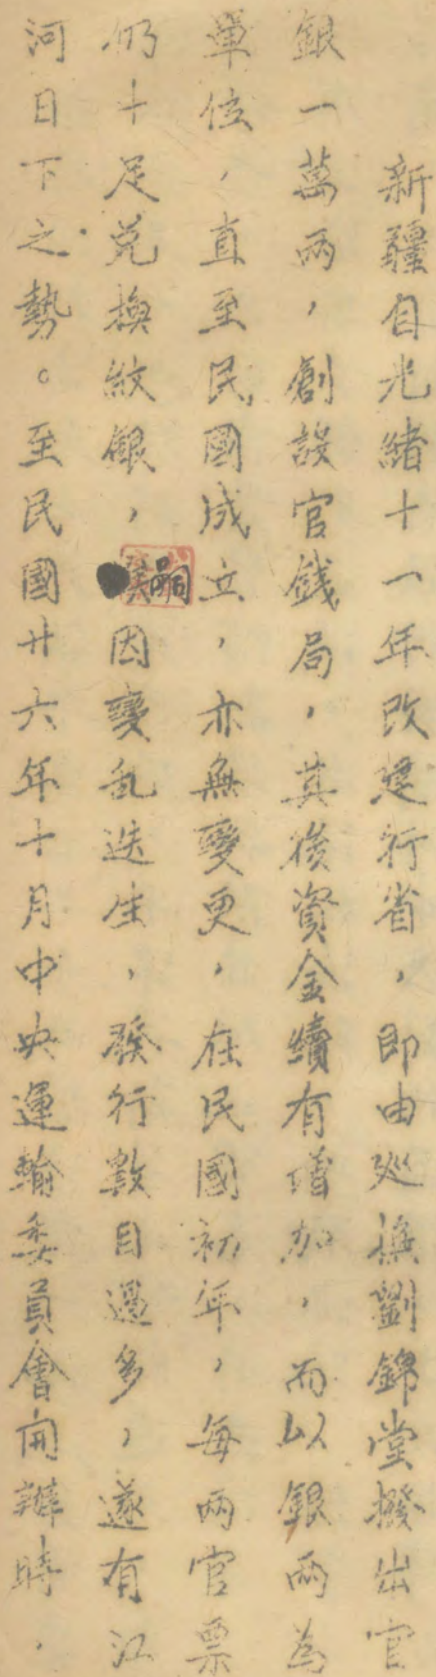 新疆自光緒十一年改建行省，即由巡撫劉錦堂撥出官
銀一萬兩，創設官錢局，其後資金續有增加，而以銀兩為
單位，直至民國成立，亦無變更，在民國初年，每兩官票
仍十足兌換紋銀，嗣因變亂迭生，發行數目過多，遂有江
河日下之勢。至民國廿六年十月中央運輸委員會開辦時，